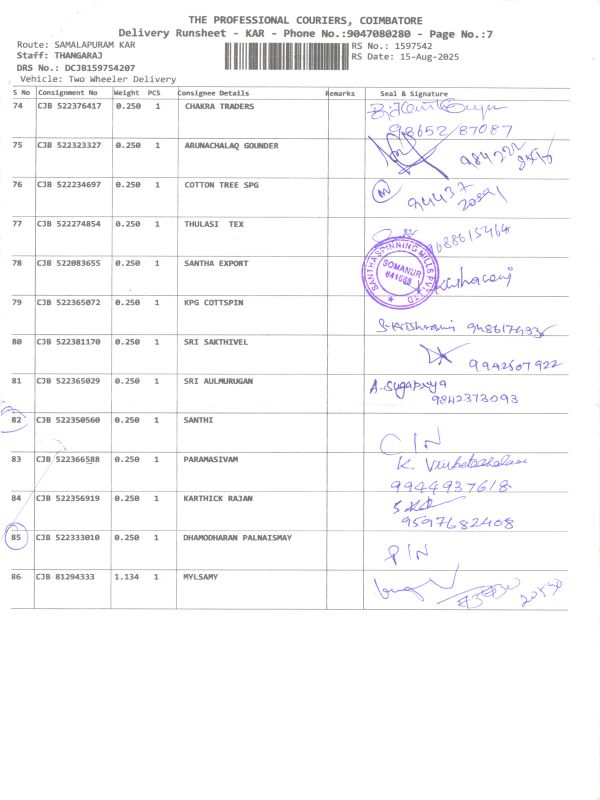 THE PROFESSIONAL COURIERS, COIMBATORE
Delivery Runsheet - KAR - Phone No.:9047080280 - Page No.:7
Route: SAMALAPURAM KAR RS No.: 1597542
Staff: THANGARAJ RS Date: 15-Aug-2025
DRS No.: DCJB159754207
Vehicle: Two Wheeler Delivery
S No Consignment No Weight PCS Consignee Details Remarks Seal & Signature
74 CJB 522376417 0.250 1 CHAKRA TRADERS
98652 87087
75 CJB 522323327 0.250 1 ARUNACHALAQ GOUNDER
76 CJB 522234697 0.250 1 COTTON TREE SPG
94437
77 CJB 522274854 0.250 1 THULASI TEX
9688615464
78 CJB 522083655 0.250 1 SANTHA EXPORT
SANTHA SPINNING MILLS PVT. LTD
SOMANUR
79 CJB 522365072 0.250 1 KPG COTTSPIN
80 CJB 522381170 0.250 1 SRI SAKTHIVEL
9942507922
81 CJB 522365029 0.250 1 SRI AULMURUGAN
A-Sugapriya
9842373093
82 CJB 522350560 0.250 1 SANTHI
CIN
83 CJB 522366588 0.250 1 PARAMASIVAM
K. Venkatachalam
9944937618
84 CJB 522356919 0.250 1 KARTHICK RAJAN
9597682408
85 CJB 522333010 0.250 1 DHAMODHARAN PALNAISMAY
PIN
86 CJB 81294333 1.134 1 MYLSAMY